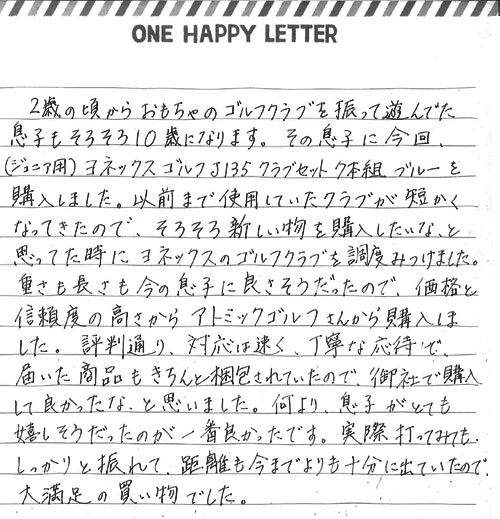 ONE HAPPY LETTER
2歳の頃からおもちゃのゴルフクラブを振って遊んでた
息子もそろそろ10歳になります。その息子に今回、
(ジュニア用)ヨネックスゴルフJ135クラブセット7本組 ブルーを
購入しました。以前まで使用していたクラブが短かく
なってきたので、そろそろ新しい物を購入したいな、と
思ってた時にヨネックスのゴルフクラブを調度みつけました。
重さも長さも今の息子に良さそうだったので、価格と
信頼度の高さからアトミックゴルフさんから購入しま
した。評判通り、対応は速く、丁寧な応待で、
届いた商品もきちんと梱包されていたので、御社で購入
して良かったな、と思いました。何より、息子がとても
嬉しそうだったのが一番良かったです。実際打ってみても、
しっかりと振れて、距離も今までよりも十分に出ていたので、
大満足の買い物でした。